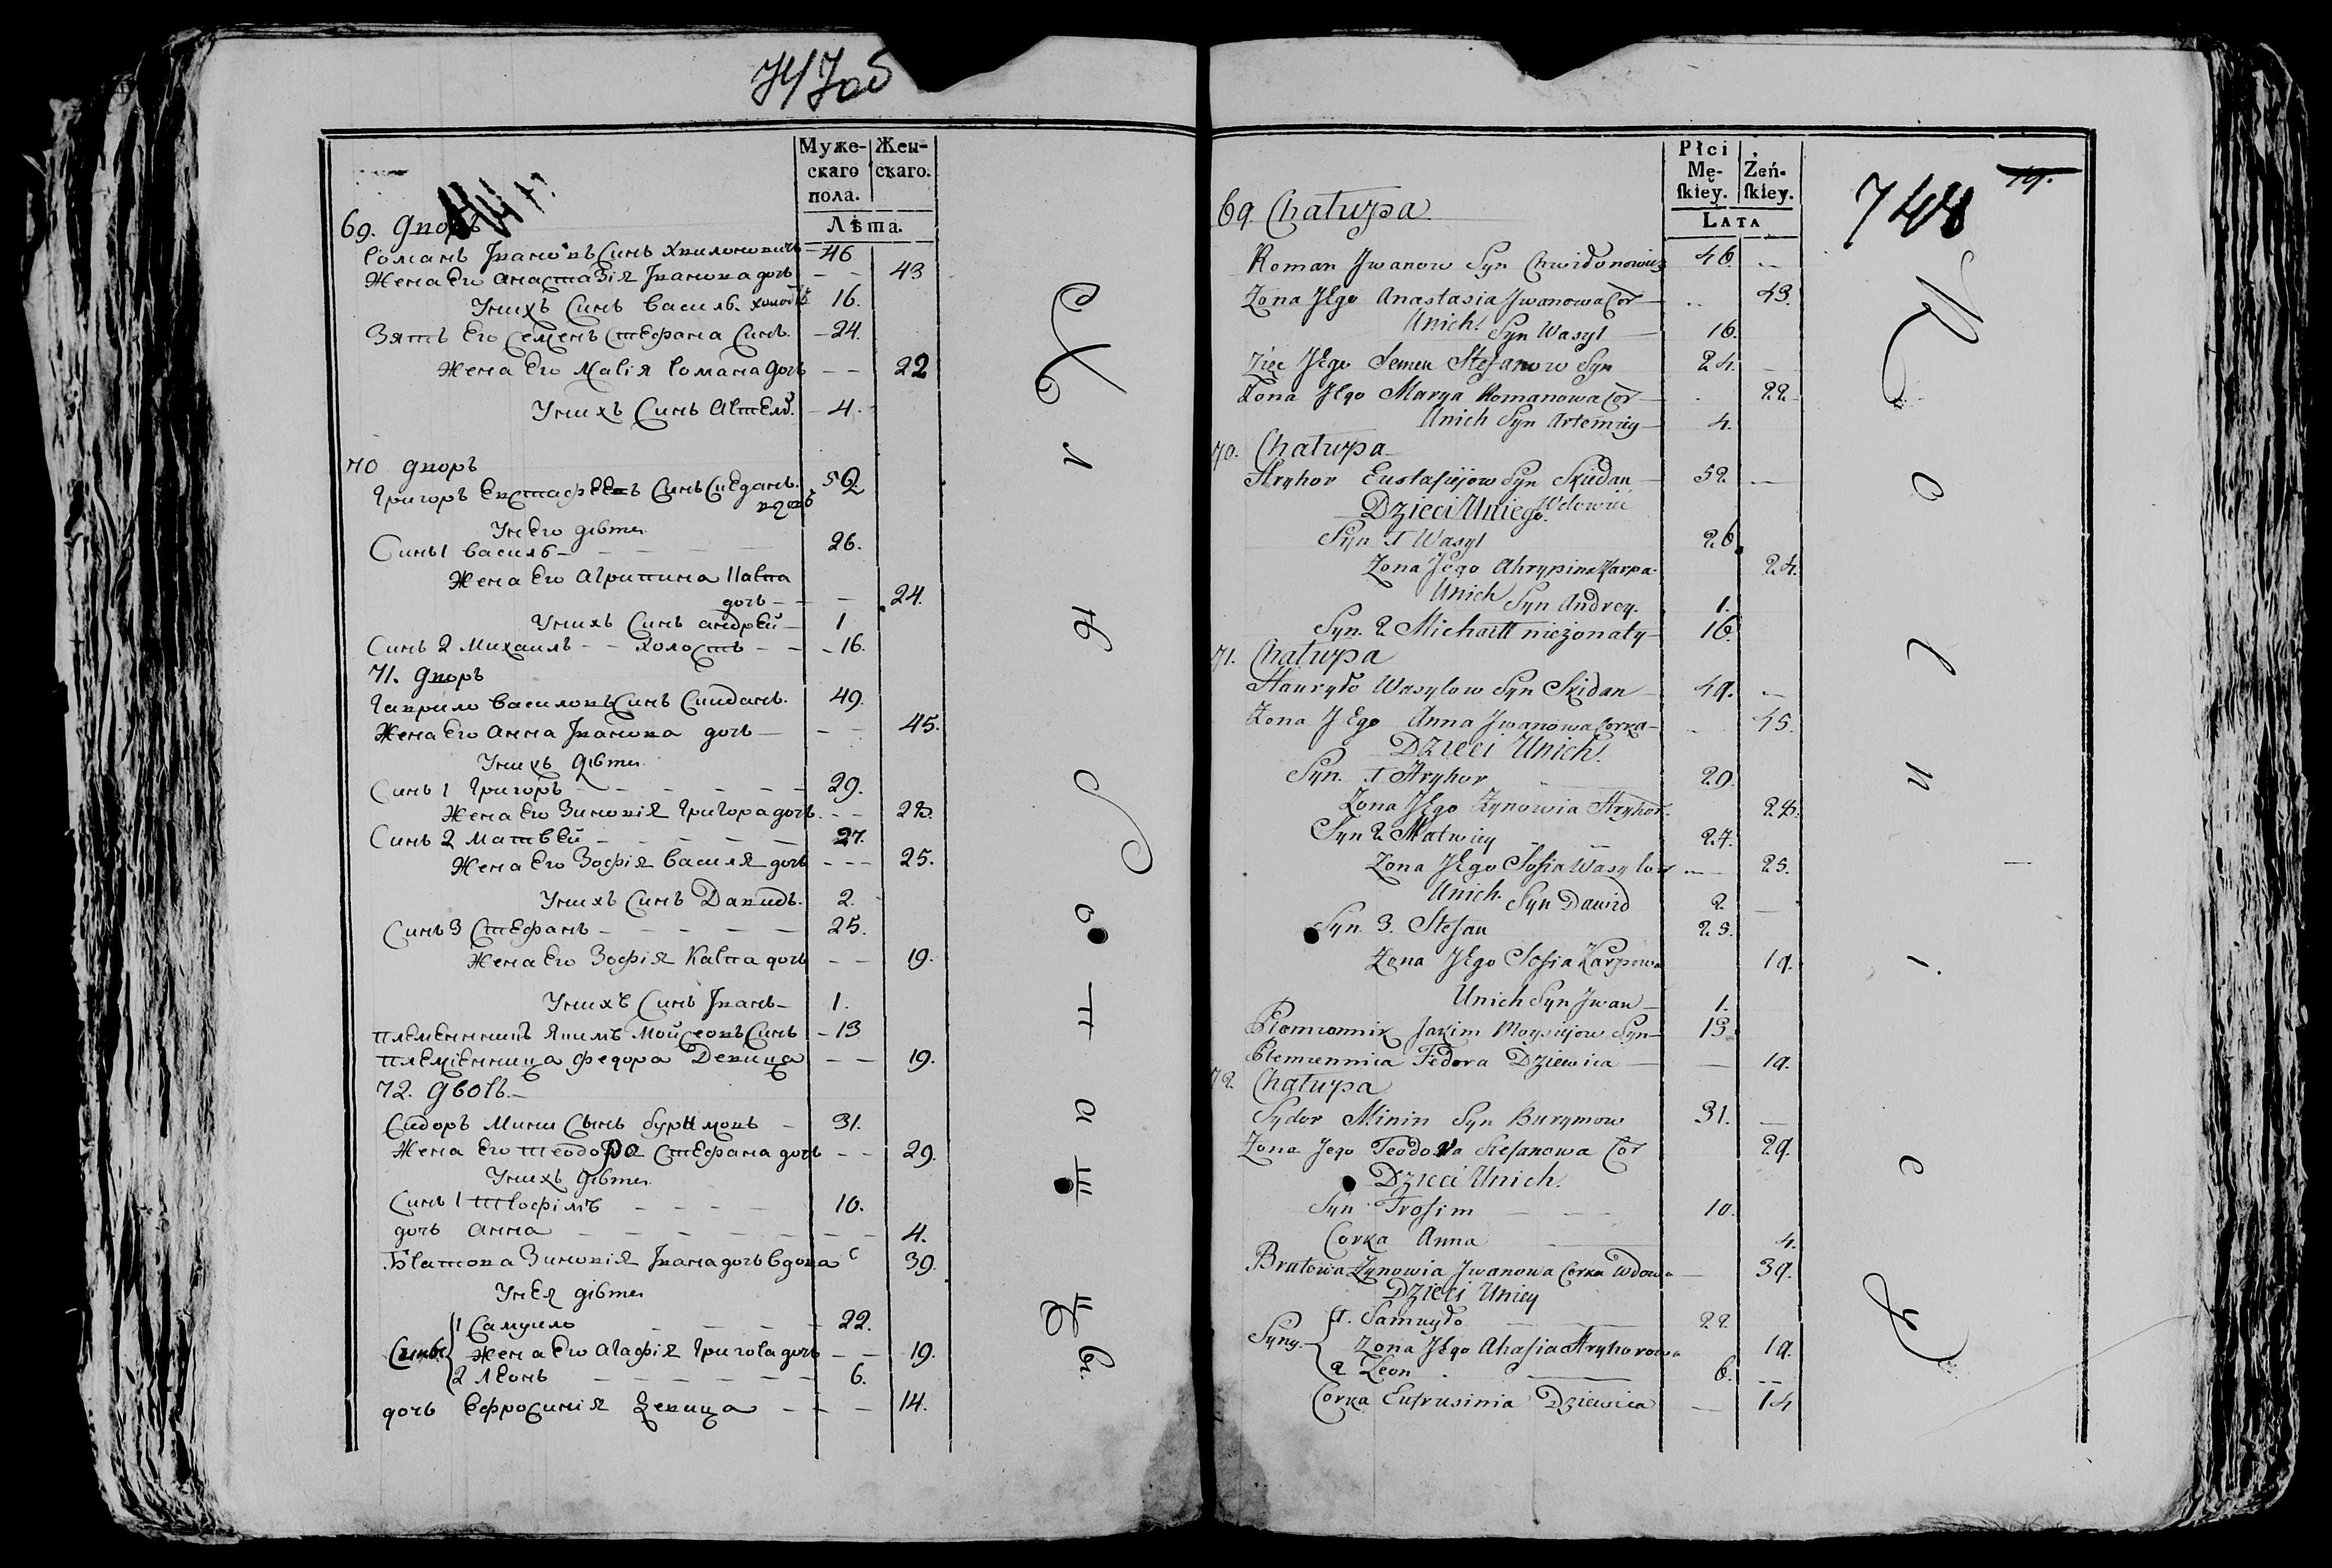 747об
Муже- Жен-
скаго скаго.
пола.
Лѣта.
69. дворъ
Романъ Ивановъ Синъ Хвилоновичъ 46
Жена Его Анастазія Иванова дочь — — 43
Унихъ Синъ Василь. холостъ 16.
Зять Его Семенъ Стефана Синъ. — 24.
Жена Его Марія Романа дочь — — 22
Унихъ Синъ — 4.
70 дворъ
Григоръ Синъ 52
Унего дѣти
Синъ 1 Василь — 26.
Жена Его Агрипина Карпа
дочь — — 24.
Унихъ Синъ андрей — 1
Синъ 2 Михаилъ — — Холостъ — — 16.
71. дворъ
Гаврило Василовъ Синъ Скиданъ. 49.
Жена Его Анна Иванова дочь — — — 45.
Унихъ дѣти
Синъ 1 Григоръ — 29.
Жена Его Зиновія Григора дочь. — — 28.
Синъ 2 Матвѣй — 27.
Жена Его Зофія Василя дочь — — — 25.
Унихъ Синъ Давидъ. 2.
Синъ 3 Стефанъ — 25.
Жена Его Зофія Карпа дочь — — 19.
Унихъ Синъ Иванъ — 1.
племенникъ Якимъ Мойсеовъ Синъ — 13
племѣнница Федора Девица — — 19.
72. дворъ. —
Сидоръ Мини Сынъ Буримовъ — 31.
Жена Его теодора Стефана дочь — — 29.
Унихъ дѣти
Синъ 1 трофімъ — 10.
дочь Анна — 4.
Братова Зиновія Ивана дочь вдова 39.
Унея дѣти
1 Самуило — 22.
Сины Жена Его Агафія Григора дочь — — 19.
2 Леонъ — 6.
дочь Ефросинія Девица — — — 14.
Płci
Mę- Żeń-
ſkiey. ſkiey.
LATA
748
19.
69. Chałupa
Roman Jwanow Syn Chwidonowicz 46.
Zona JEgo Anastasia Jwanowa Cor — 43.
Unich Syn Wasyl — 16.
Zięć JEgo Semen Stefanow Syn 24.
Zona JEgo Marya Romanowa Cor — 22
Unich Syn Artemiy — 4.
70. Chałupa
Hryhor Eustafiejow Syn Skidan — 52
Wdowiec
Dzieci Uniego.
Syn 1 Wasyl 26
Zona Jego Ahrypina Karpa. 24.
Unich Syn Andrey. 1.
Syn. 2 Michaiłł nieżonaty — 16.
71. Chałupa
Hauryło Wasylow Syn Skidan — 49.
Zona JEgo Anna Jwanowa Corka — 45.
Dzieci Unich.
Syn. 1 Hryhor 29.
Zona JEgo Zynowia Hryhor. 28.
Syn 2 Matwiey 27.
Zona JEgo Sofia Wasylow 25.
Unich. Syn Dawid 2
Syn. 3. Stefan 25.
Zona JEgo Sofia Karpowa 19.
Unich Syn Jwan — 1.
Plemiennik Jakim Moysiejow Syn — 13.
Plemiennica Fedora Dziewica — 19.
72. Chałupa
Sydor Minin Syn Burymow 31.
Zona Jego Teodora Stefanowa Cor 29.
Dzieci Unich.
Syn Trofim 10.
Corka Anna 4.
Bratowa Zynowia Jwanowa Corka Wdowa — 39.
Dzieci Uniey
1. Samuyło 22.
Syny. Zona JEgo Ahafia Hryhorowa 19.
2 Leon 6.
Corka Eufrusinia Dziewica — 14
R o l n i c y